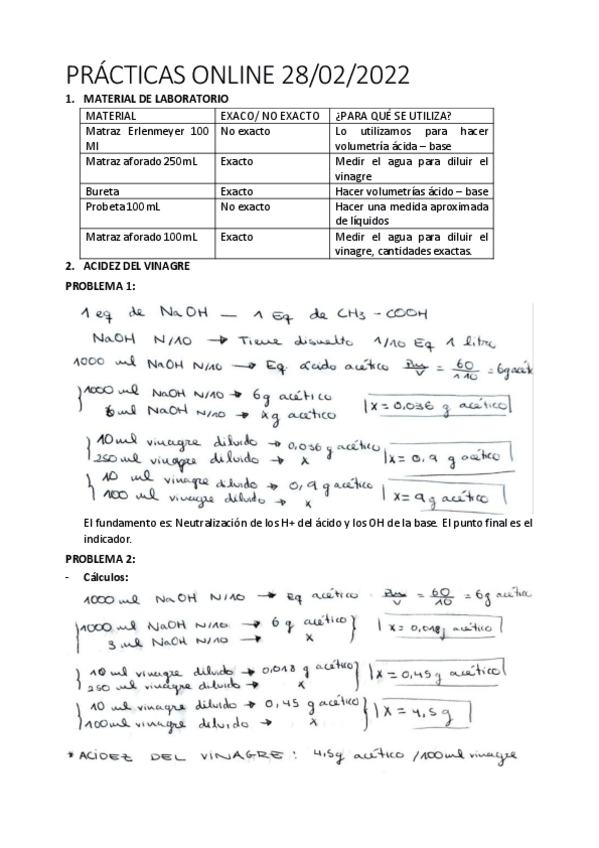 PRÁCTICAS ONLINE 28/02/2022
1. MATERIAL DE LABORATORIO
MATERIAL EXACO/ NO EXACTO ¿PARA QUÉ SE UTILIZA?
Matraz Erlenmeyer 100 Ml No exacto Lo utilizamos para hacer volumetría ácida – base
Matraz aforado 250mL Exacto Medir el agua para diluir el vinagre
Bureta Exacto Hacer volumetrías ácido – base
Probeta 100 mL No exacto Hacer una medida aproximada de líquidos
Matraz aforado 100mL Exacto Medir el agua para diluir el vinagre, cantidades exactas.
2. ACIDEZ DEL VINAGRE
PROBLEMA 1:
1 eq de NaOH — 1 Eq de CH3 - COOH
NaOH N/10 → Tiene disuelto 1/10 Eq 1 litro
1000 ml NaOH N/10 → Eq. ácido acético Pm/V = 60/1·10 = 6g acét
1000 ml NaOH N/10 → 6g acético
6 ml NaOH N/10 → xg acético x = 0,036 g acético
10 ml vinagre diluido → 0,036 g acético
250 ml vinagre diluido → x x = 0,9 g acético
10 ml vinagre diluido → 0,9 g acético
100 ml vinagre diluido → x x = 9g acético
El fundamento es: Neutralización de los H+ del ácido y los OH de la base. El punto final es el
indicador.
PROBLEMA 2:
- Cálculos:
1000 ml NaOH N/10 → Eq acético Pm/V = 60/10 = 6g acético
1000 ml NaOH N/10 → 6 g acético
3 ml NaOH N/10 → x x = 0,018g acético
10 ml vinagre diluido → 0,018 g acético
250 ml vinagre diluido → x x = 0,45 g acético
10 ml vinagre diluido → 0,45 g acético
100ml vinagre diluido → x x = 4,5 g
* ACIDEZ DEL VINAGRE: 4,5g acético /100ml vinagre